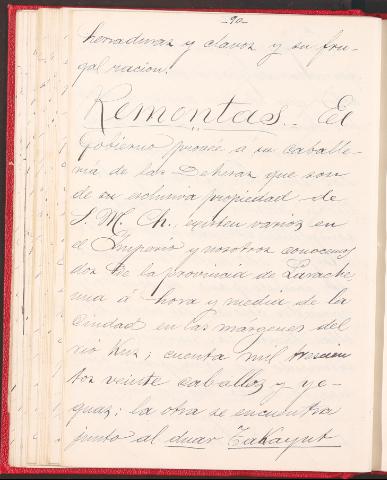 -90-
herraduras y clavos y su fru-
gal racion.
Remontas.. El
Gobierno provée á su caballe-
ria de las Dehesas que son
de su esclusiva propiedad de
S. M. Ch., existen varias en
el Imperio y nosotros conocemos
dos de la provincia de Larache
una á hora y media de la
Ciudad en las márgenes del
rio Kus; cuenta mil trescien
tos veinte caballos y ye-
guas; la otra se encuentra
junto al duar Takayut